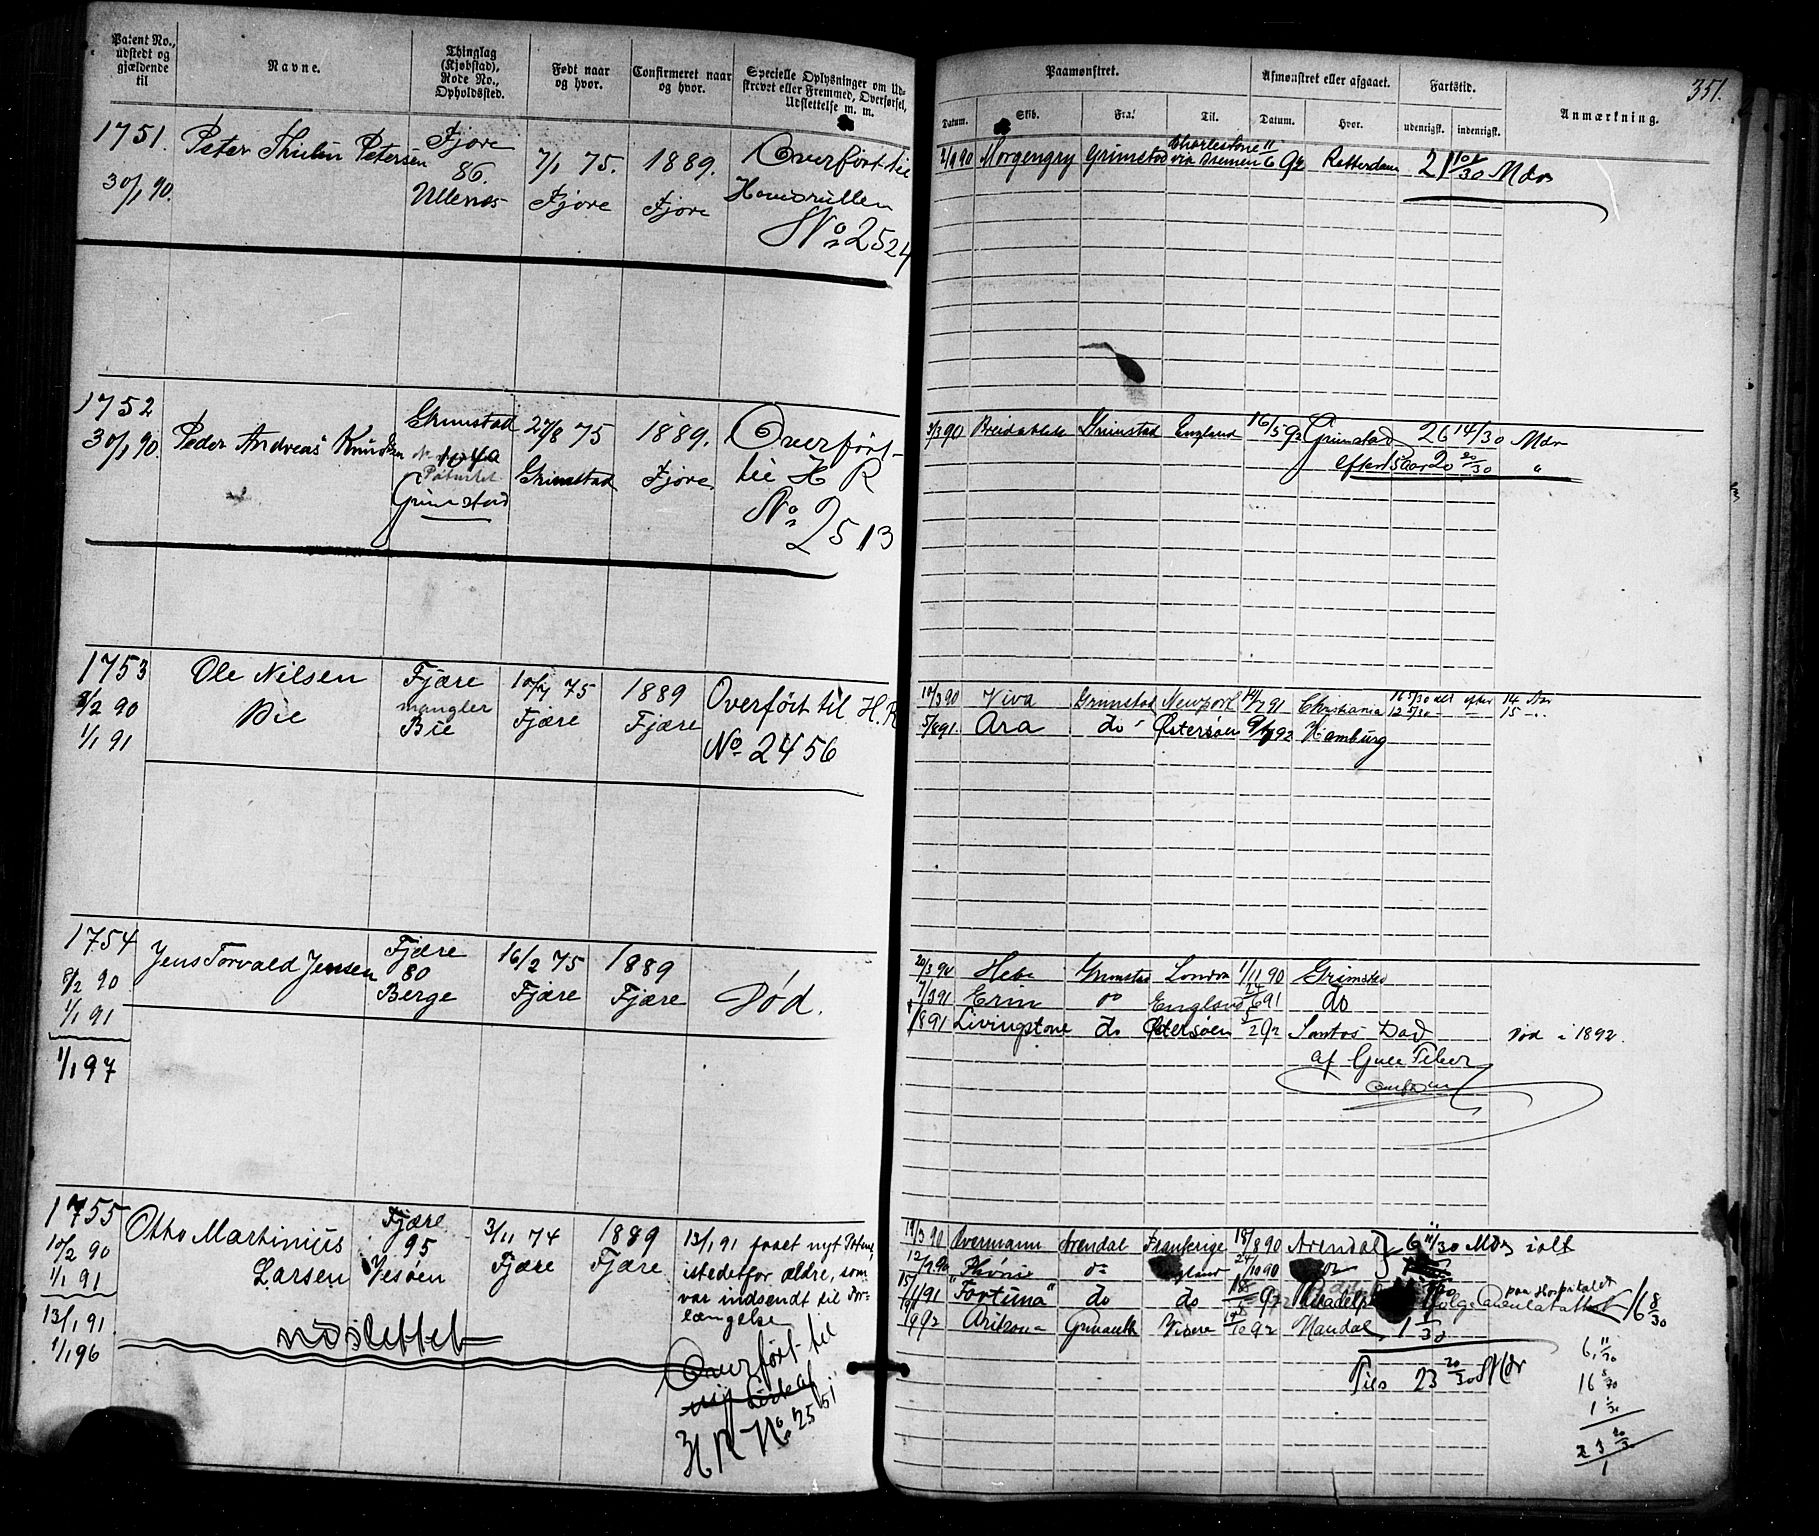 Patent No., udstedt og gjældende til
Navne.
Thinglag (Kjøbstad), Rode No., Opholdssted.
Født naar og hvor.
Confirmeret naar og hvor.
Specielle Oplysninger om Udskrevet eller Fremmed, Overførsel, Udslettelse m. m.
Paamønstret.
Datum.
Skib.
Fra.
Til.
Afmønstret eller afgaaet.
Datum.
Hvor.
Fartstid.
udenrigsk.
indenrigsk.
Anmærkning.
351.
1751.
30/1 90.
Peter Thielin Petersen
Fjære
86.
Ullenes
7/1 75.
Fjære
1889.
Fjære
Overført til
Hovedrullen
No 2524
2/9 90 Morgengry Grimstad
Charlestone
via Bremen 6 92 Rotterdam 21 10/30 Mdr
1752
30/1 90.
Peder Andreas Knudsen
Grimstad
Grimstad
27/8 75
Grimstad
1889.
Fjære
Overført
til H R
No 2513
3/3 90 Breidablik Grimstad England 16/5 92 Grimstad 26 14/30 Mdr
20/30 "
1753
8/2 90
1/1 91
Ole Nilsen
Bie
Fjære
mangler
Bie
10/7 75
Fjære
1889
Fjære
Overført til H. R
No 2456
10/3 90 Viva Grimstad Newport 14/7 91 Christiania
5/8 91. Ara do Østersøen 9/7 92 Hamburg
1754
8/2 90
1/1 91
1/1 97
Jens Torvald Jensen
Fjære
80
Berge
16/2 75
Fjære
1889
Fjære
Død.
20/3 90 Hebe Grimstad London 1/11 90 Grimstad
7/3 91 Erin do England 24/6 91 do
/8 91 Livingstone do Østersøen 5/2 92 Santos Død Død i 1892.
af Guul Feber
1755
10/2 90
1/1 91
13/1 91.
1/1 96
Otto Martinius
Larsen
Fjære
95
Vesøen
3/11 74
Fjære
1889
Fjære
13/1 91 faaet nyt Patent
istedetfor ældre, som
var indsendt til For-
længelse
udslettet
Overført til
H R No 2551
19/3 90 Overmann Arendal Frankrige 18/8 90 Arendal 6 11/30 Mdr ialt
12/9 90 Phønix do 24/10 90
15/1 91 "Fortuna" do do
paa Hospitalet
16 8/30
Mandal 1 1/30
Tils 23 20/30 Mdr
6 11/30
16 8/30
1 1/30
23 20/30
1